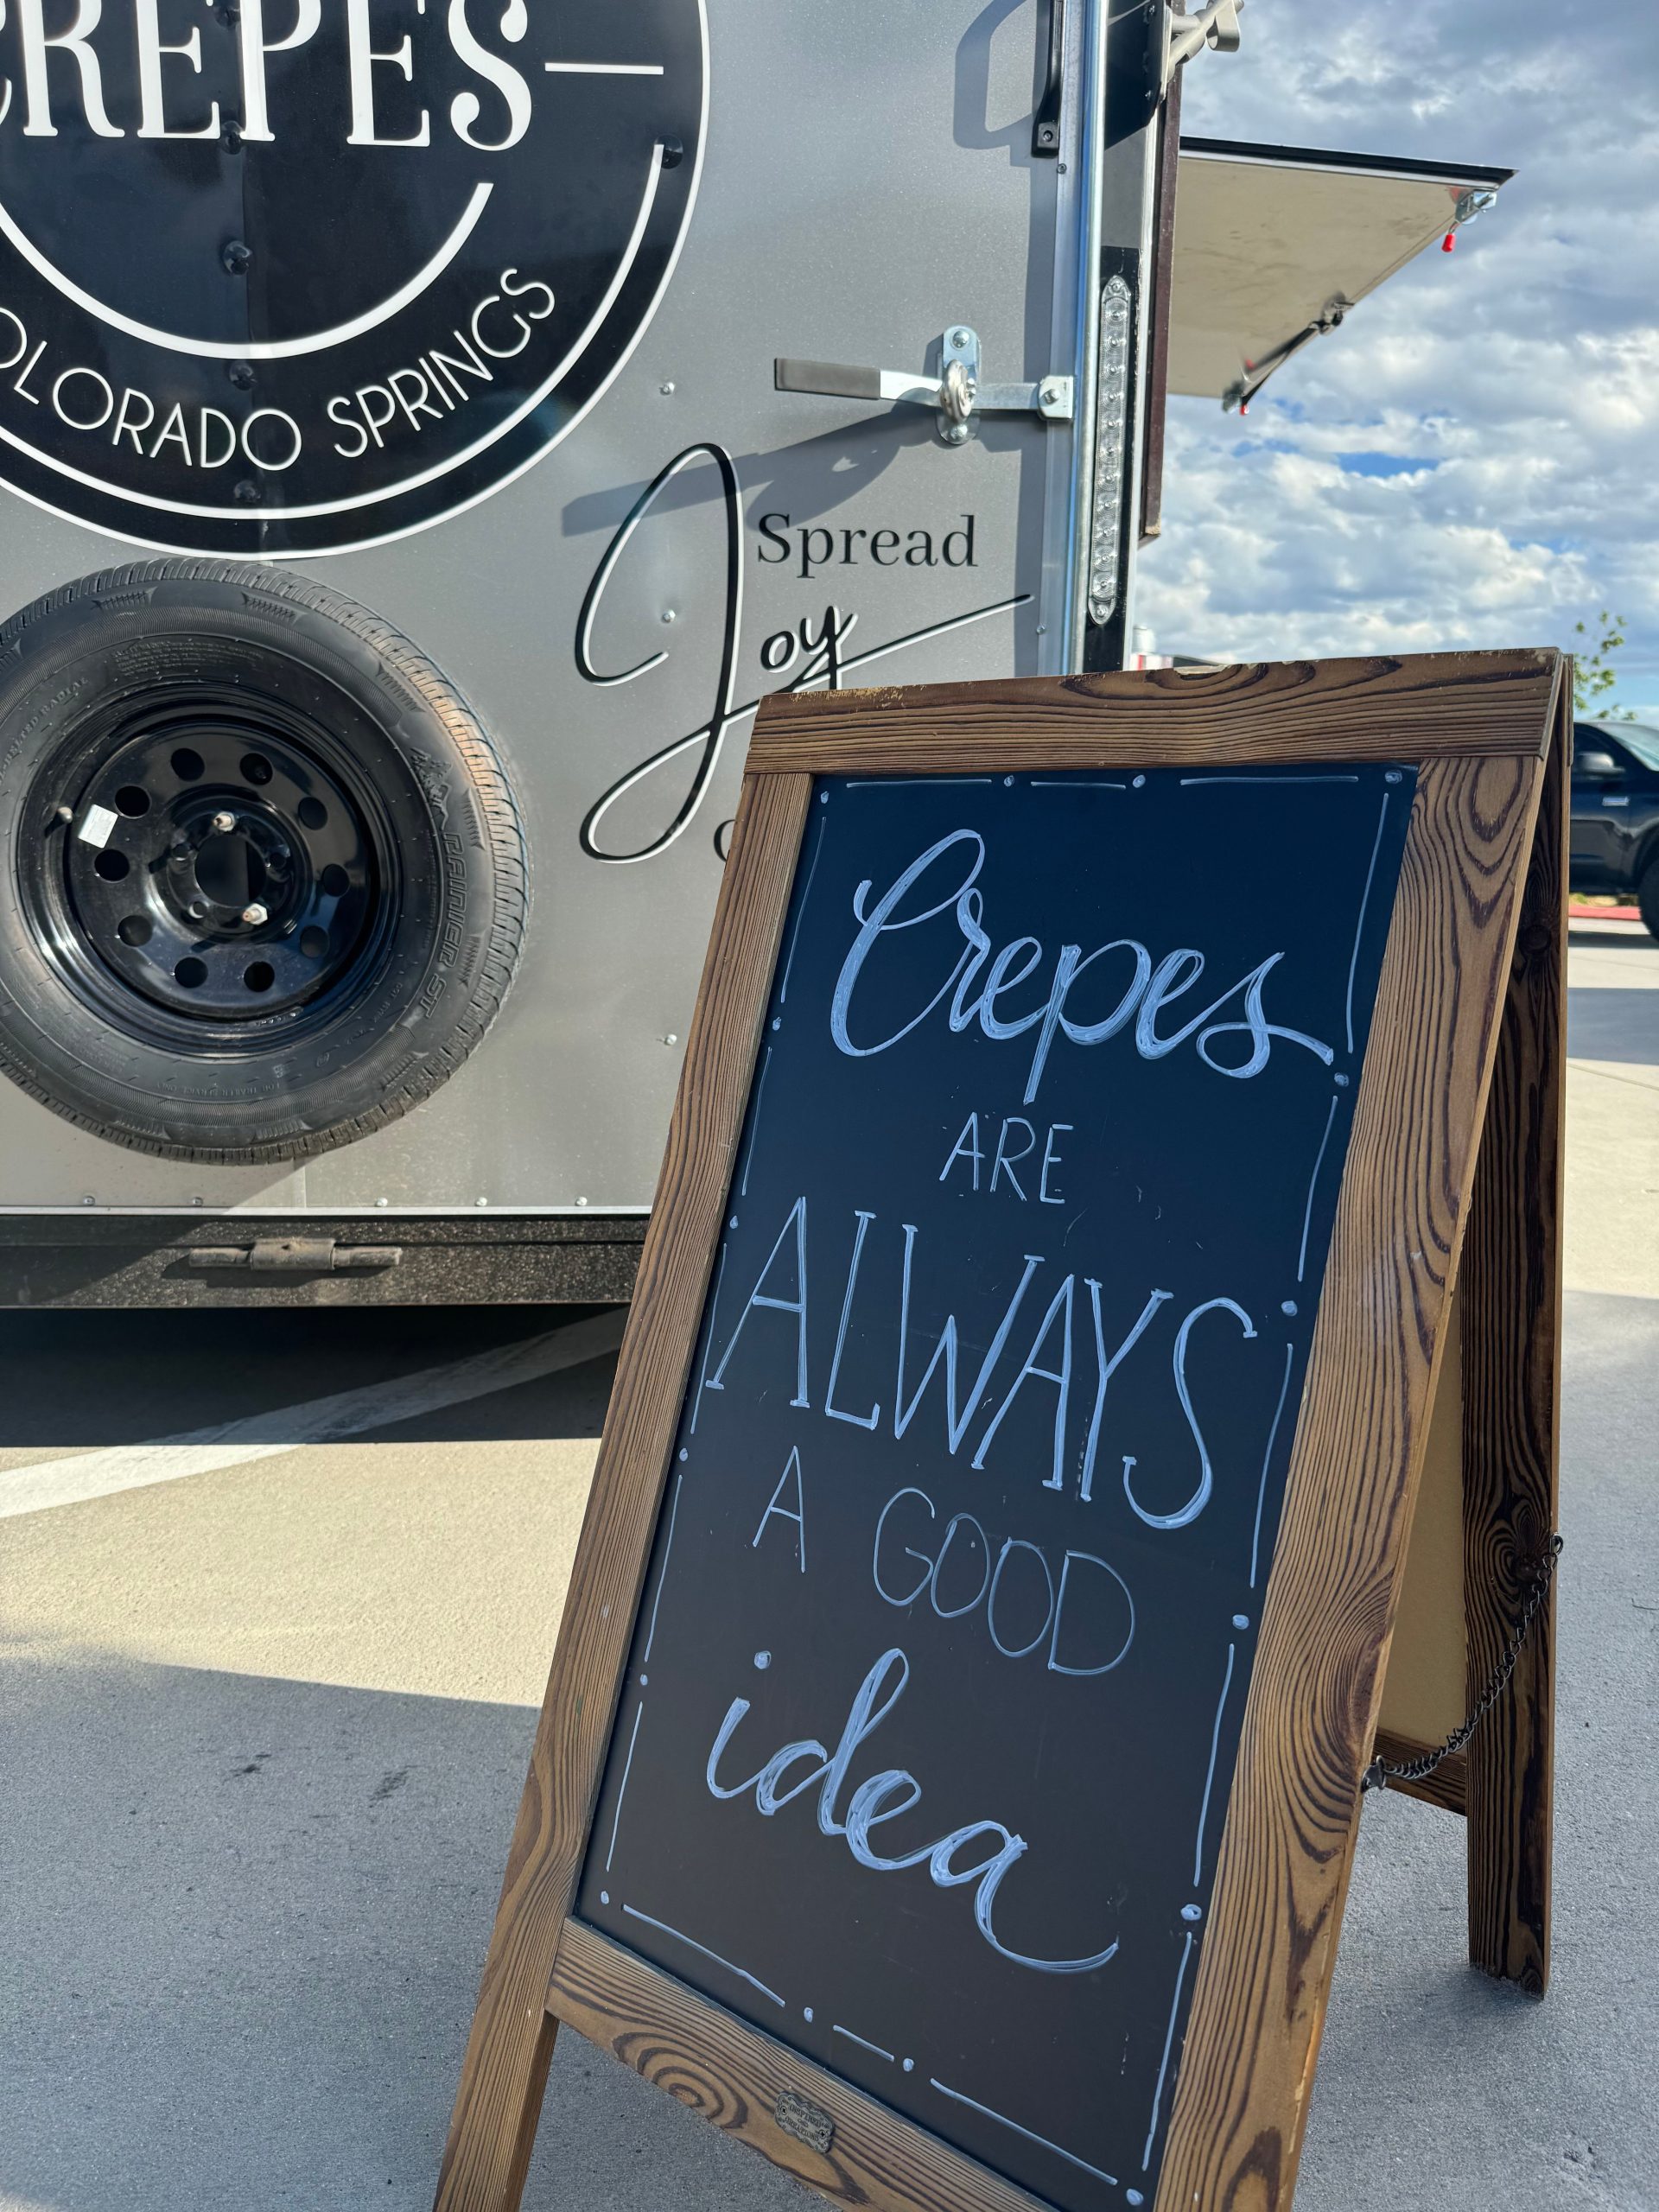 CREPES
COLORADO SPRINGS
Spread
Joy
Crepes
ARE
ALWAYS
A GOOD
idea
RAINIER ST